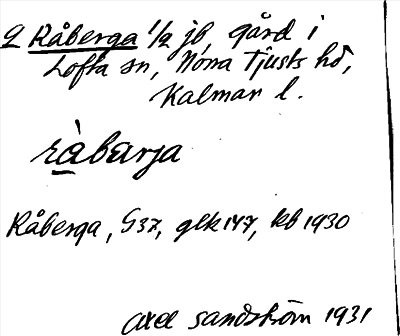 g Råberga 1/2 jb, gård i
Lofta sn, Norra Tjusts hd,
Kalmar l.
ràbarja
Råberga, G37, glk 147, kb 1930
Axel Sandström 1931